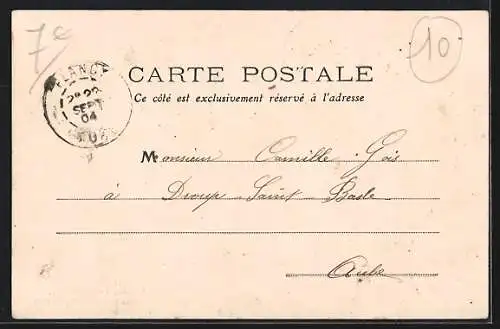 7c
10
PLANCY
22
SEPT
04
AUBE
CARTE POSTALE
Ce côté est exclusivement réservé à l'adresse
Monsieur Camille Gois
à Droup-Saint-Basle
Aube